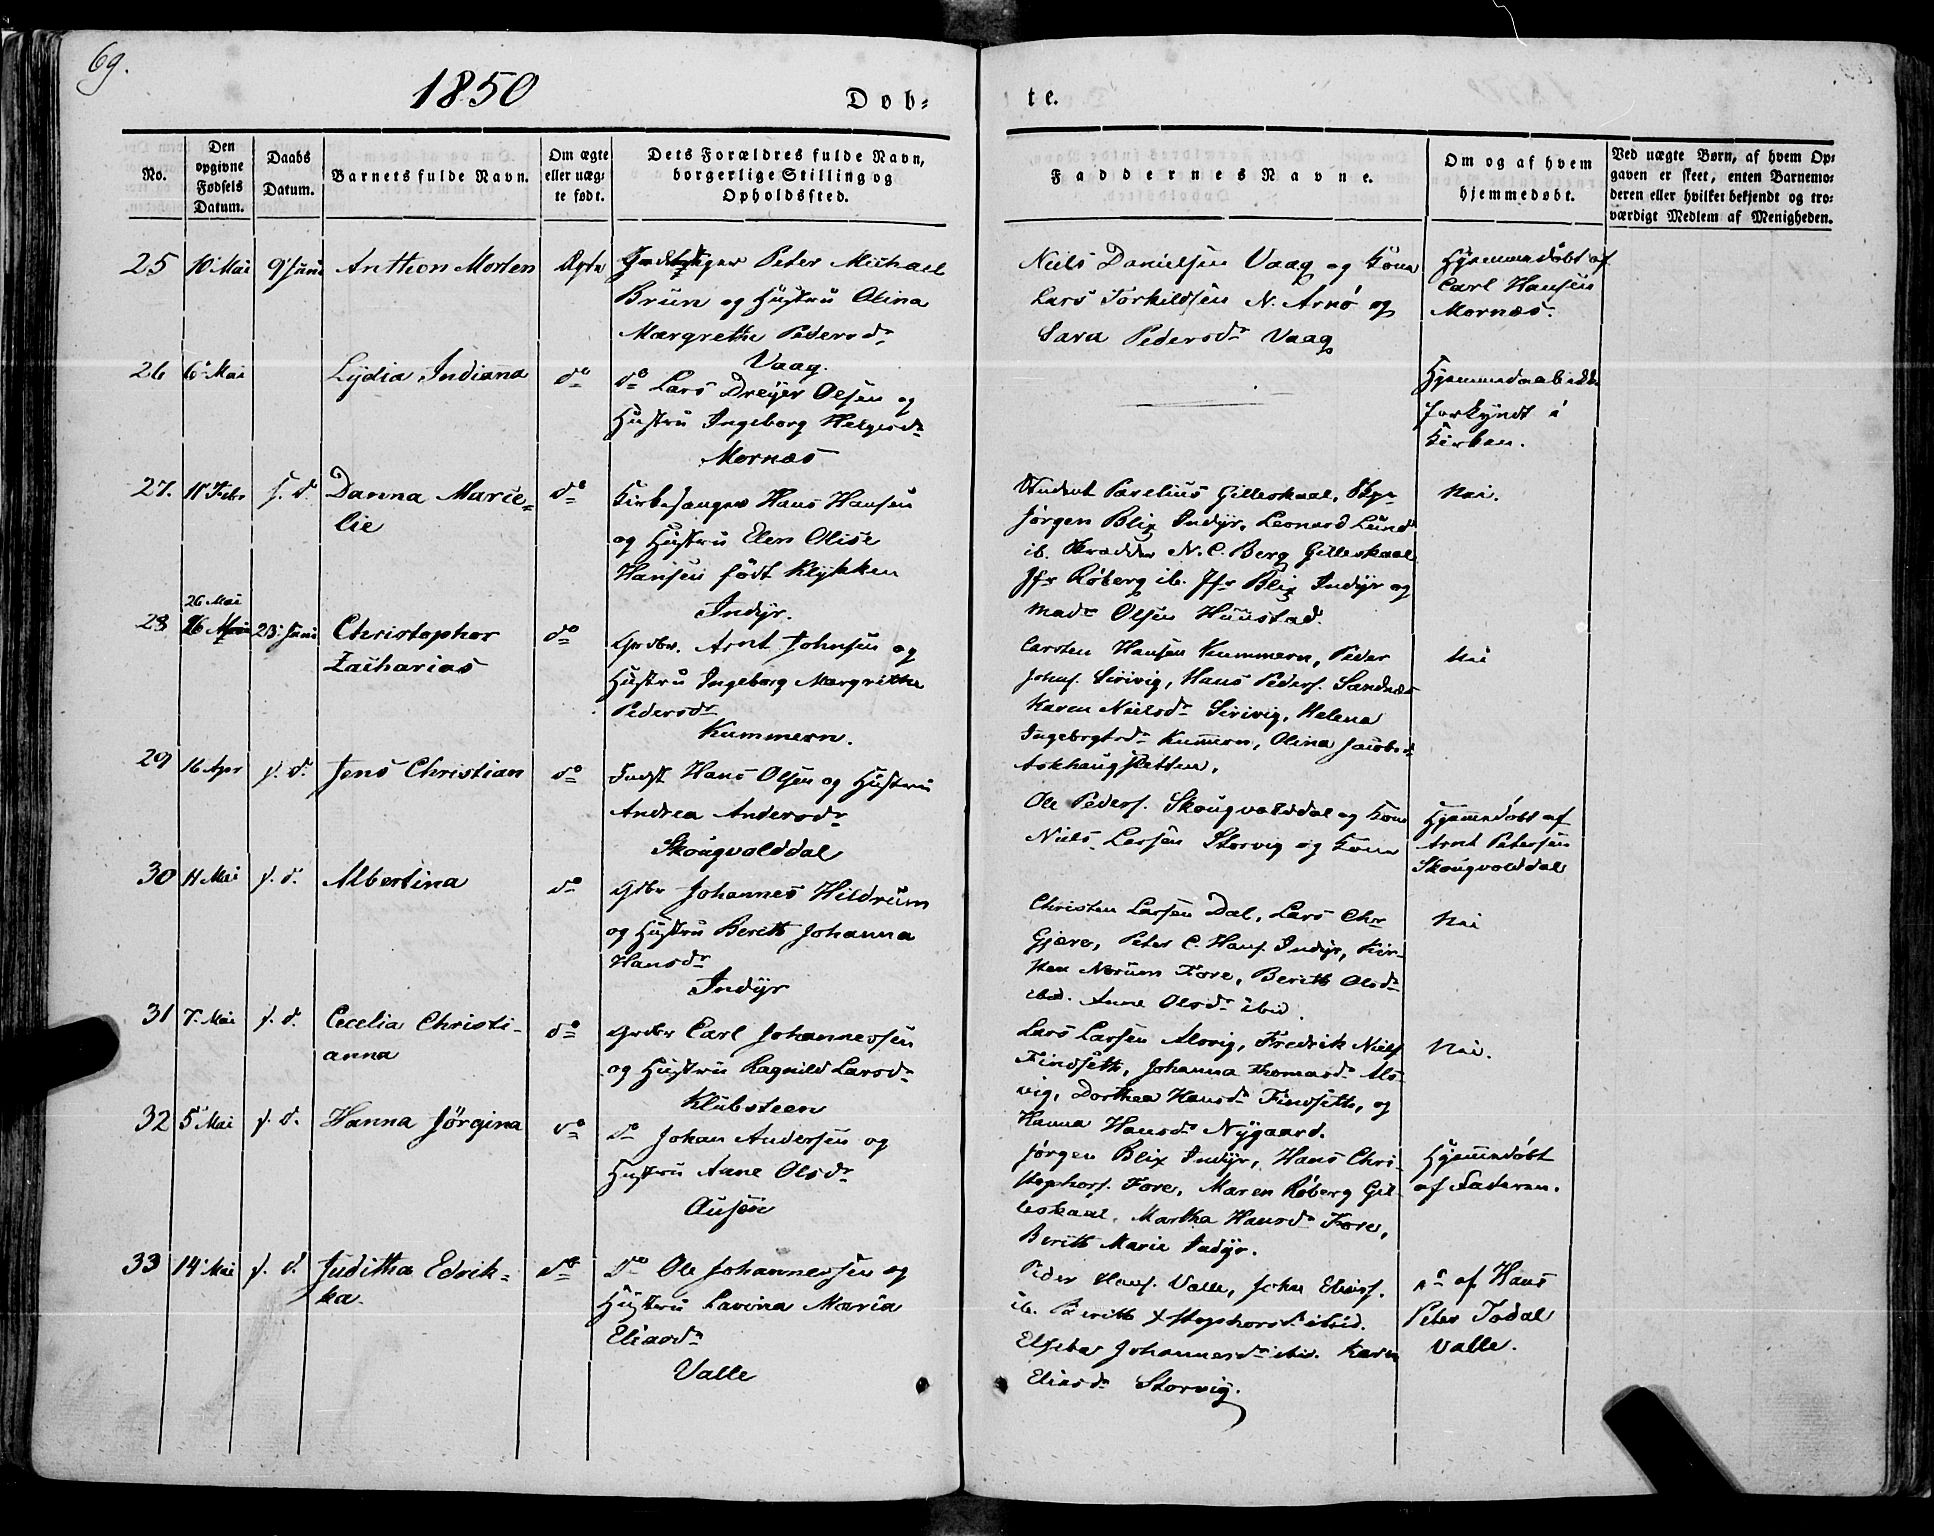 69.
1850
Døb-
te.
No.
Den opgivne Fødsels Datum.
Daabs Datum.
Barnets fulde Navn.
Om ægte eller uægte født.
Dets Forældres fulde Navn, borgerlige Stilling og Opholdssted.
Faddernes Navne.
Om og af hvem hjemmedøbt.
Ved uægte Børn, af hvem Opgaven er skeet, enten Barnemoderen eller hvilket bekjendt og troværdigt Medlem af Menigheden.
25 10' Mai 9' Juni Anthon Morten Ægte
Peter Michael
Brun og Hustru Olina
Margrethe Pedersdr
Vaag.
Niels Danielsen Vaag og Kone
Lars Torkildsen N. Arnø og
Sara Pedersdr Vaag
Hjemmedøbt af
Carl Hansen
Mornæs.
26 6' Mai Lydia Indiana do
do Lars Dreyer Olsen og
Hustru Ingeborg Helgesdr
Mornæs
Hjemmedaab ikke
forkyndt i
Kirken.
27. 11' Febr s. d. Danna Marie-
lie do
Kirkesanger Hans Hansen
og Hustru Elen Olise
Hansen født Klykken
Indyr.
Student Parelius Gilleskaal,
Jørgen Blix Indyr, Leonard Lund
ib. Skrædder N. C. Berg Gilleskaal
Jfr Røberg ib. Jfr Blix Indyr og
Mad. Olsen Huustad.
Nei.
28 26 Mai 23' Juni Christopher
Zacharias do
Grdbr. Arnt Johnsen og
Hustru Ingeborg Margrethe
Pedersdr
Kummern.
Carsten Hansen Kummern, Peder
Johns. Sirivig, Hans Peders. Sandnæs
Karen Nielsdr Sirivig, Helena
Ingebrgtsdr Kummern, Olina Jacobsd.
Askhaugsletten.
Nei
29 16 Apr s. d. Jens Christian do
Indst Hans Olsen og Hustru
Andrea Andersdr
Skougvolddal
Ole Peders. Skougvolddal og Kone
Niels Larsen Storvig og Kone
Hjemmedøbt af
Arnt Petersen
Skougvolddal
30 11 Mai s. d. Albertina do
Grdbr Johannes Hildrum
og Hustru Berith Johanna
Hansdr
Indyr
Christen Larsen Dal, Lars Chr
Gjære, Peter C. Hans. Indyr, Kir-
sten Norum Fore, Berith Olsdr
ibid. Anne Olsdr ibid.
Nei
31 7. Mai s. d. Cecelia Christi-
anna do
Grdbr Carl Johannessen
og Hustru Ragnild Larsdr
Klubsteen
Lars Larsen Alsvig, Fredrik Niels
Findseth, Johanna Thomasdr Als-
vig, Dorthea Hansdr Findseth, og
Hanna Hansdr Nygaard.
Nei.
32 5' Mai s. d. Hanna Jørgina do
do Johan Andersen og
Hustru Anne Olsdr
Ausen
Jørgen Blix Indyr, Hans Chri-
stophers. Fore, Maren Røberg Gil-
leskaal, Martha Hansdr Fore,
Berith Marie Indyr.
Hjemmedøbt
af Faderen.
33 14' Mai s. d. Juditha Edrik-
ka. do
do Ole Johannessen og
Hustru Lavina Maria
Eliasdr
Valle
Peder Hans. Valle, John Eliass.
ib. Berith Xstophersdr ibid.
Elsebe Johannesdr ibid. Karen
Eliasdr Storvig.
do af Hans
Peter Todal
Valle.